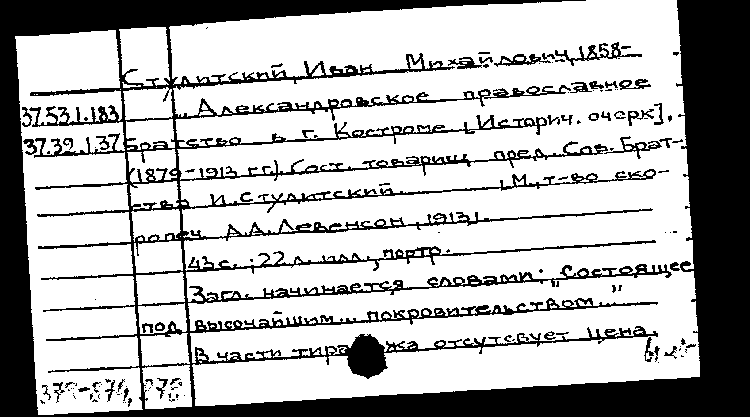 Студитский, Иван Михайлович, 1858-
37.53.1.183 „Александровское православное
37.39.1.37 братство в г. Костроме [Историч. очерк].
(1879-1913 гг.) Сост. товарищ пред. Сов. Брат-
ства И. Студитский. [М., т-во ско-
ропеч. А.А. Левенсон, 1913].
43 с.; 22 л. илл., портр.
Загл. начинается словами: „Состоящее
под высочайшим... покровительством..."
В части тиража отсутсвует цена.
379-874, 278